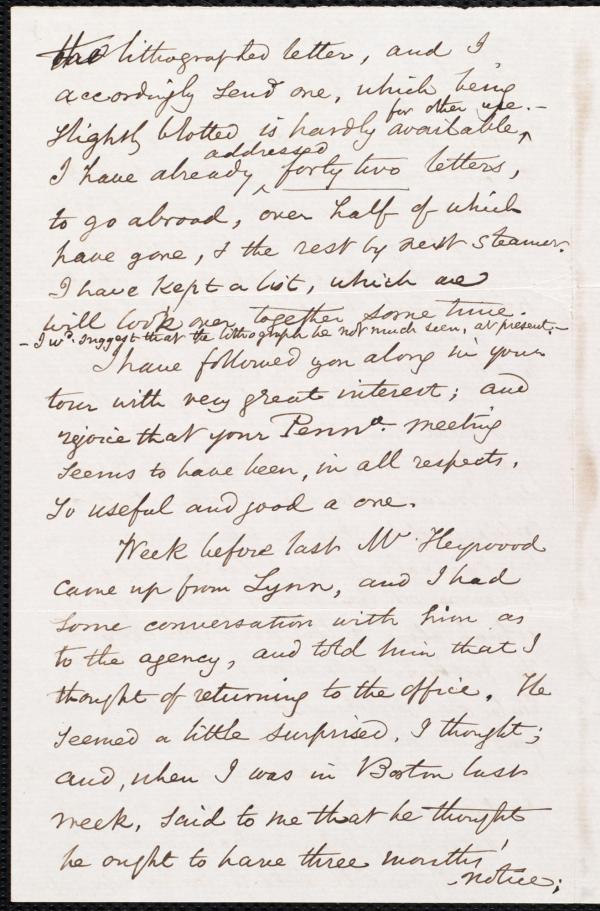 the lithographed letter, and I
accordingly send one, which being
for other use. –
slightly blotted is hardly available,
addressed
I have already forty two letters,
to go abroad, over half of which
have gone, & the rest by next steamer.
I have kept a list, which we
will look over together some time.
– I wd. suggest that the lithograph be not much seen, at present. –
I have followed you along in your
tour with very great interest; and
rejoice that your Penna. meeting
seems to have been, in all respects,
so useful and good a one.
Week before last Mr. Heywood
came up from Lynn, and I had
some conversation with him as
to the agency, and told him that I
thought of returning to the office. He
seemed a little surprised, I thought;
and, when I was in Boston last
week, said to me that he thought
he ought to have three months'
notice;